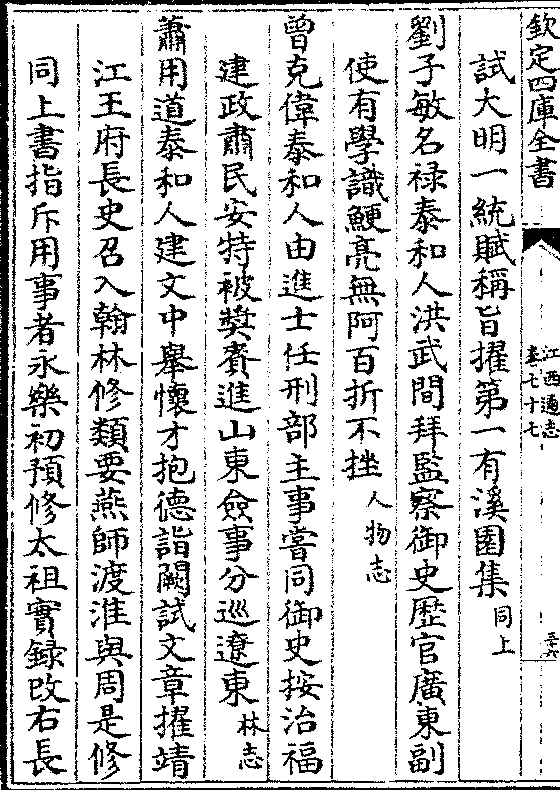 欽定四庫全書
江西通志
卷七十七
試大明一統賦稱旨擢第一有溪園集同上
劉子敏名祿泰和人洪武間拜監察御史歴官廣東副
使有學識鯁亮無阿百折不挫人物志
曾克偉泰和人由進士任刑部主事嘗同御史按治福
建政肅民安特被奬賚進山東僉事分巡遼東林志
蕭用道泰和人建文中舉懷才抱德詣闕試文章擢靖
江王府長史召入翰林修類要燕師渡淮與周是修
同上書指斥用事者永樂初預修太祖實録改右長